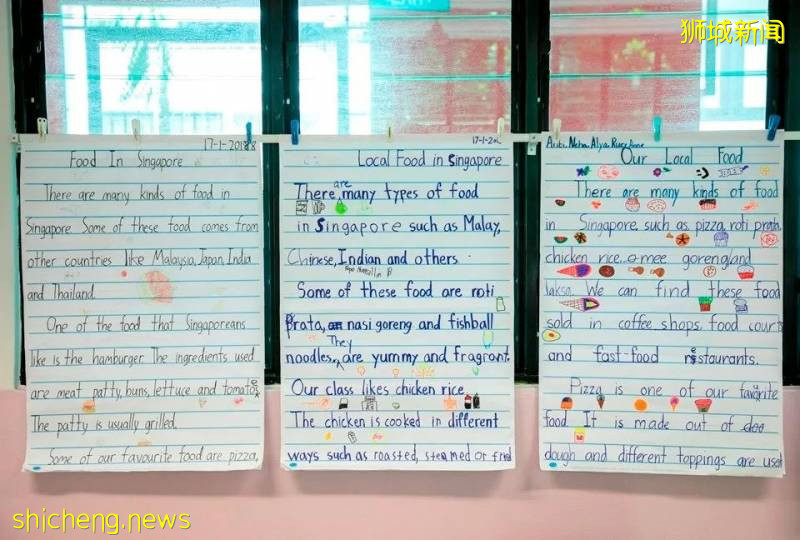 狮城新闻
17-1-2018
Food In Singapore
There are many kinds of food in
Singapore. Some of these food comes from
other countries like Malaysia, Japan, India
and Thailand.
One of the food that Singaporeans
like is the hamburger. The ingredients used
are meat patty, buns, lettuce and tomatoe
The patty is usually grilled.
Some of our favourite food are pizza,
17-1-20
Local Food in Singapore
There are many types of food
in Singapore such as Malay,
Chinese, Indian and others.
Some of these food are roti
Prata, nasi goreng and fishball
noodles. They are yummy and fragrant.
Our class likes chicken rice.
The chicken is cooked in different
ways such as roasted, steamed or fried
Alya
Our Local Food
There are many kinds of food
in Singapore such as pizza, roti prata,
chicken rice, mee goreng and
laksa. We can find these food
sold in coffee shops, food courts
and fast-food restaurants.
Pizza is one of our favourite
food. It is made out of
dough and different toppings are used
shicheng.news